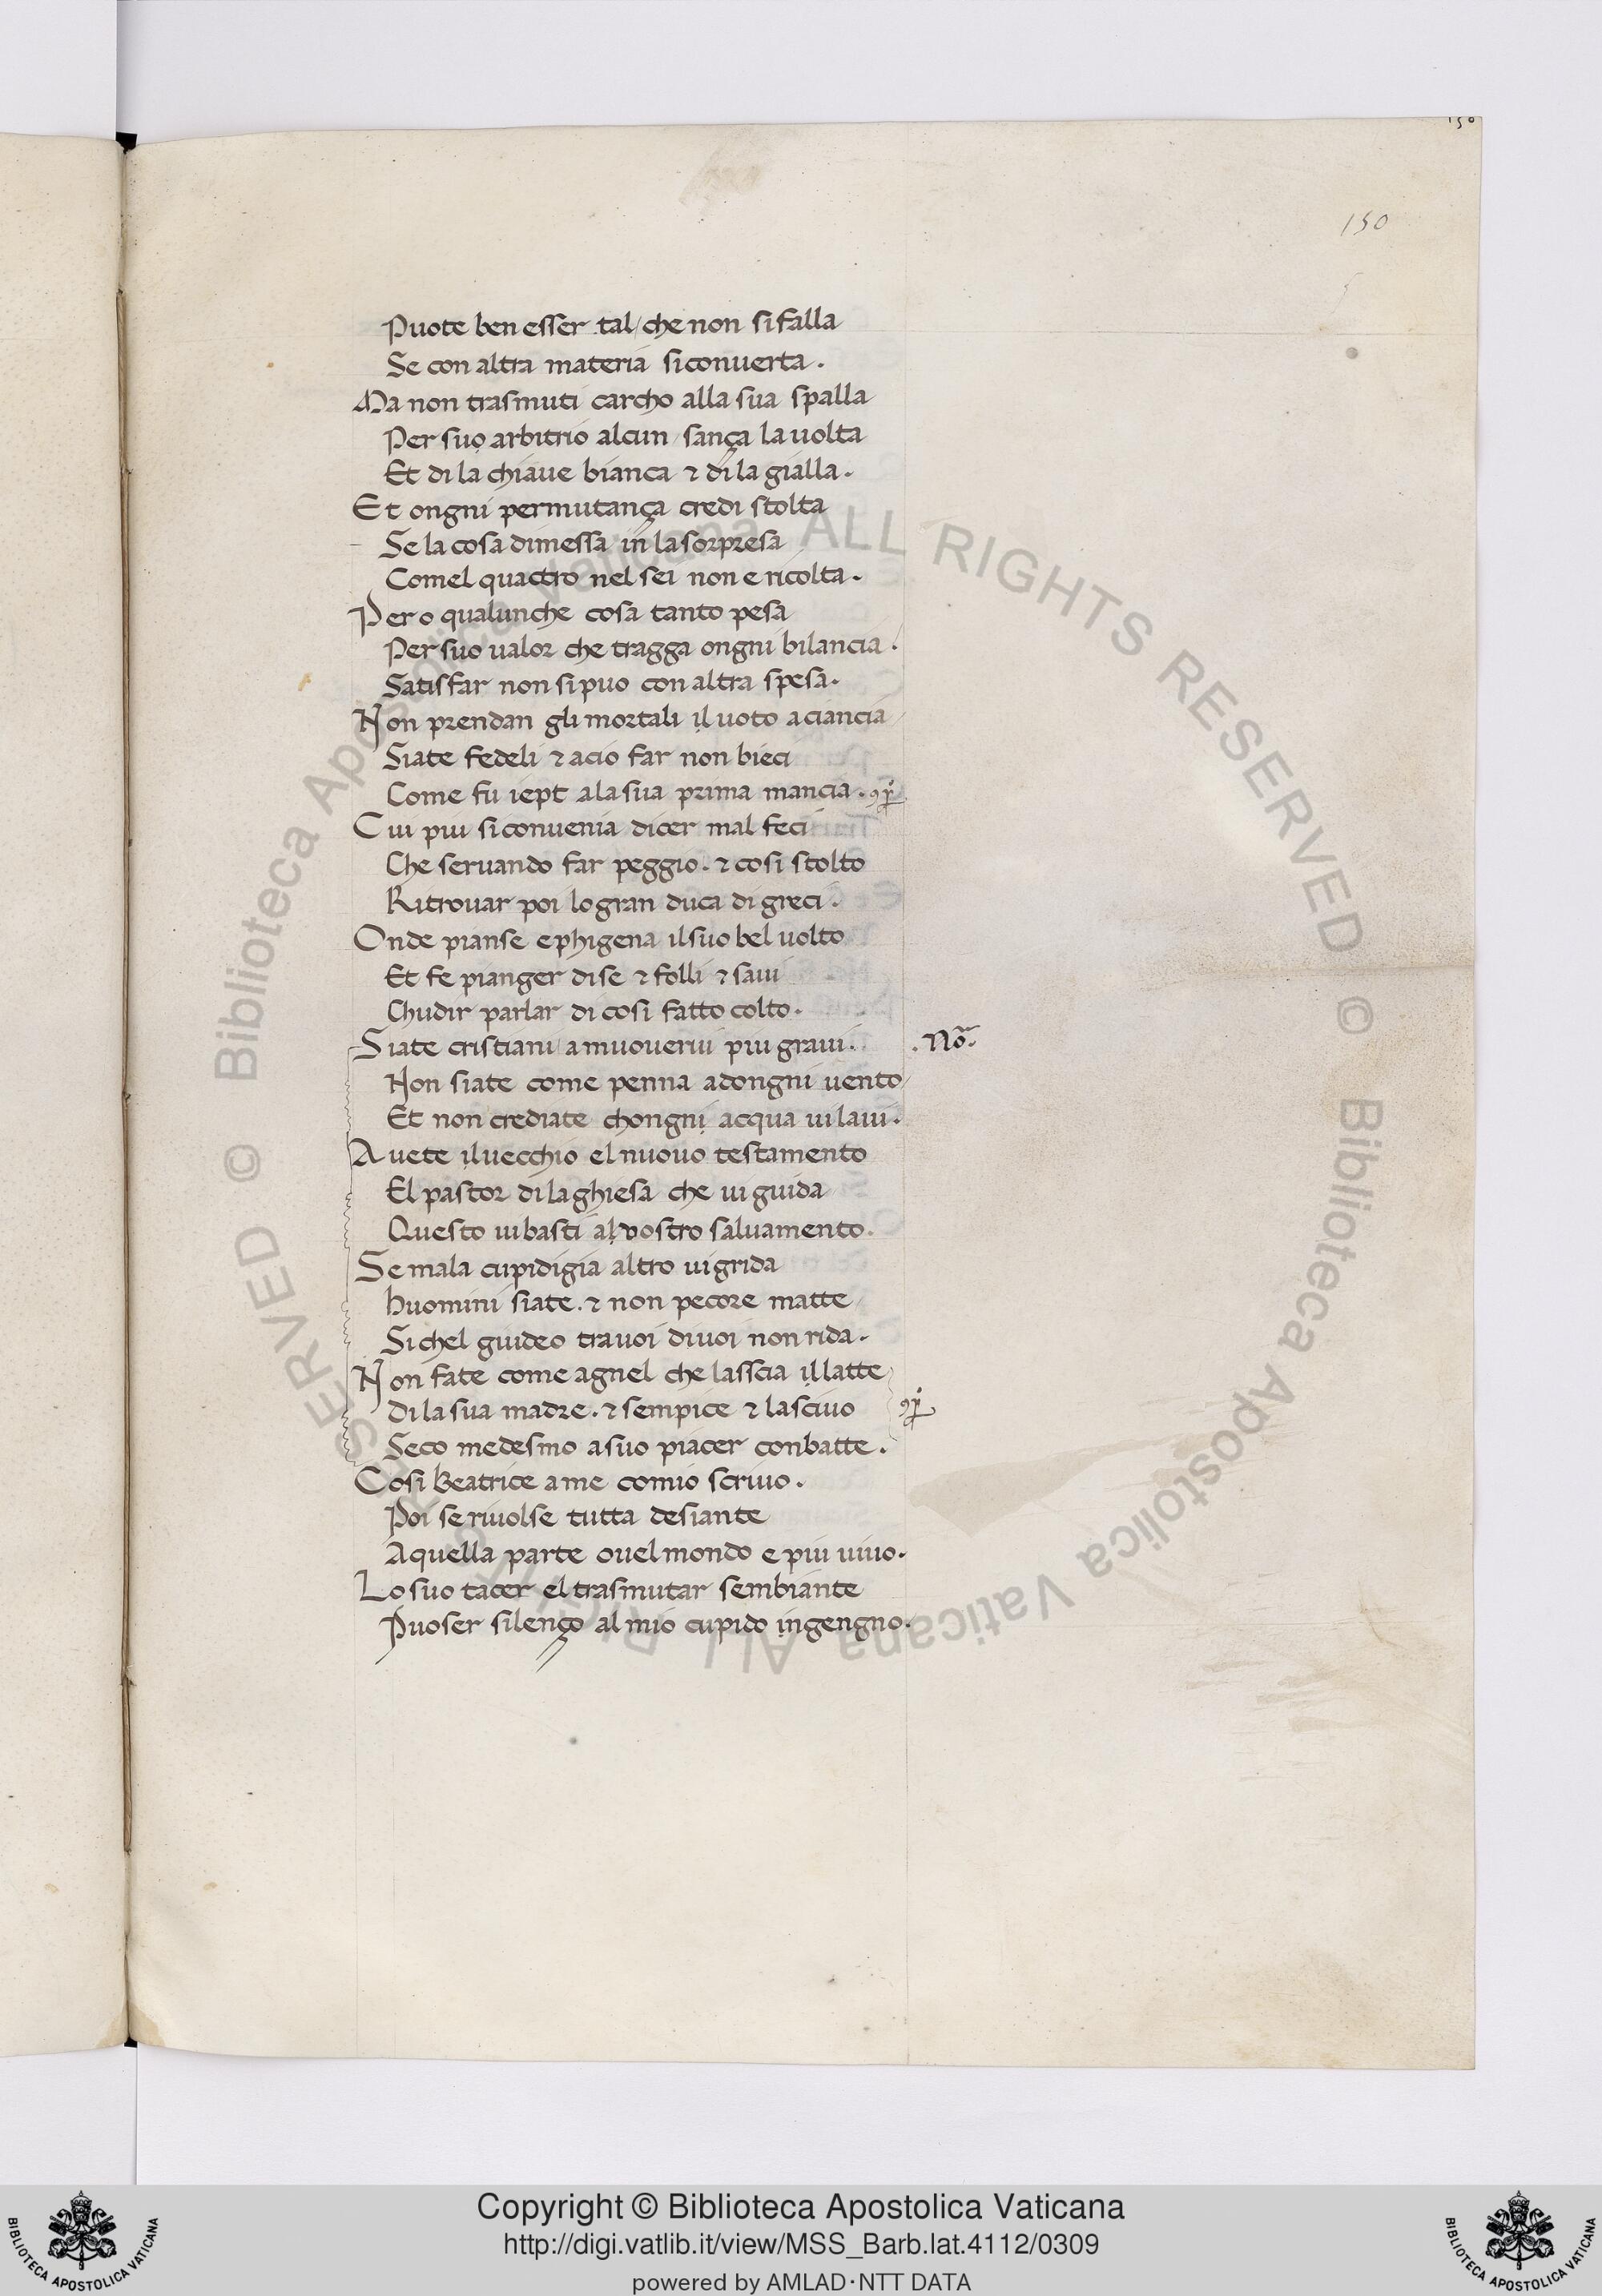 150
150
Puote ben esser tal / che non si falla
Se con altra materia si conuerta.
Ma non trasmuti carcho alla sua spalla
Per suo arbitrio alcun / sança la uolta
Et di la chiaue bianca & di la gialla.
Et ongni permutança credi stolta
Se la cosa dimessa in la sorpresa
Comel quattro nel sei non e ricolta.
Pero qualunche cosa tanto pesa
Per suo ualor che tragga ongni bilancia.
Satisfar non si puo con altra spesa.
Non prendan gli mortali il uoto a ciancia
Siate fedeli & acio far non bieci
Come fu iept a la sua prima mancia.
Cui piu si conuenia dicer mal feci
Che seruando far peggio. & cosi stolto
Ritrouar poi lo gran duca di greci.
Onde pianse ephigena il suo bel uolto
Et fe pianger di se & folli & saui
Chudir parlar di cosi fatto colto.
Siate cristiani a muouerui piu graui.
.No.
Non siate come penna ad ongni uento
Et non crediate chongni acqua ui laui.
Auete il uecchio el nuouo testamento
El pastor di la ghiesa che ui guida
Questo ui basti al vostro saluamento.
Se mala cupidigia altro ui grida
huomini siate. & non pecore matte
Si chel guideo tra uoi di uoi non rida.
Non fate come agnel che lasscia il latte
di la sua madre. & sempice & lasciuo
Seco medesmo a suo piacer conbatte.
Cosi Beatrice a me comio scriuo.
Poi se riuolse tutta desiante
A quella parte ouel mondo e piu uiuo.
Lo suo tacer el trasmutar sembiante
Puoser silenço al mio cupido ingengno.
© Biblioteca Apostolica Vaticana ALL RIGHTS RESERVED © Biblioteca Apostolica Vaticana ALL RIGHTS RESERVED
Copyright © Biblioteca Apostolica Vaticana
http://digi.vatlib.it/view/MSS_Barb.lat.4112/0309
powered by AMLAD·NTT DATA
BIBLIOTECA APOSTOLICA VATICANA
BIBLIOTECA APOSTOLICA VATICANA